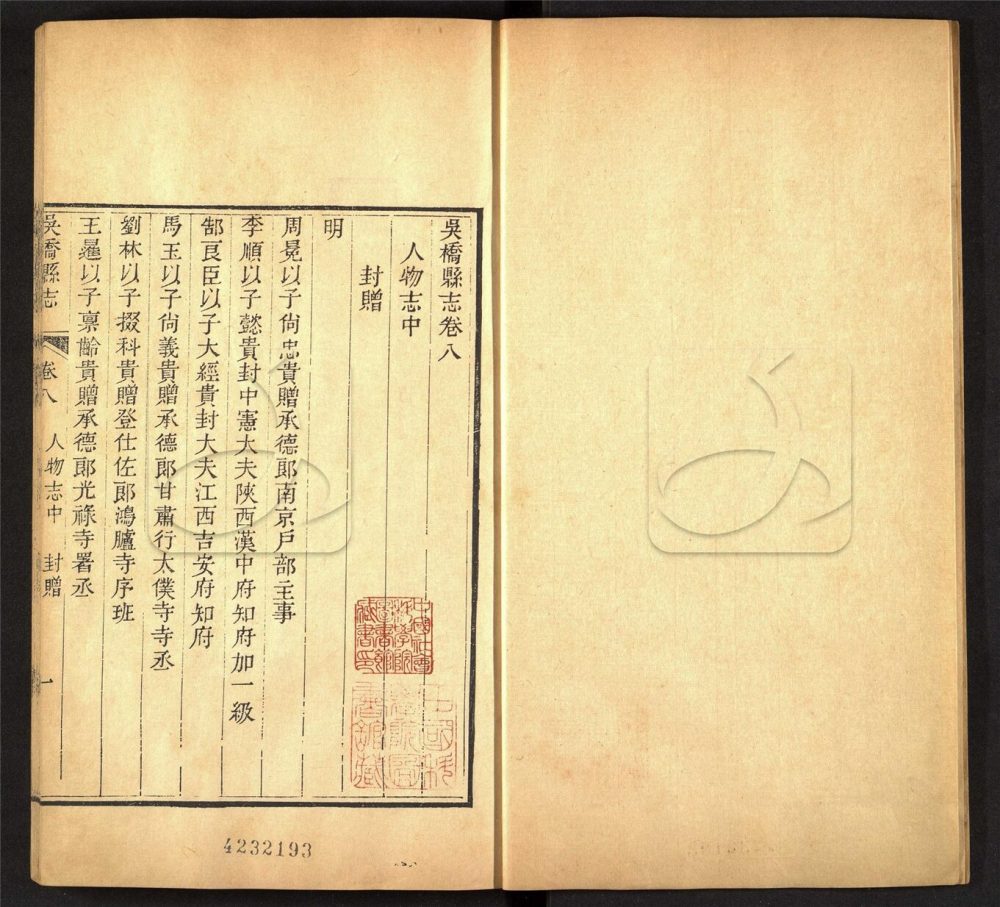 吳橋縣志卷八
人物志中
封贈
明
周冕以子尙忠貴贈承德郞南京戶部主事
李順以子懿貴封中憲大夫陝西漢中府知府加一級
郜良臣以子大經貴封大夫江西吉安府知府
馬玉以子尙義貴贈承德郞甘肅行太僕寺寺丞
劉林以子掇科貴贈登仕佐郞鴻臚寺序班
王暹以子禀齡貴贈承德郞光祿寺署丞
吳橋縣志 卷八 人物志中 封贈 一
中國社會科學院圖書館藏書印
中國科學院圖書館藏
4232193